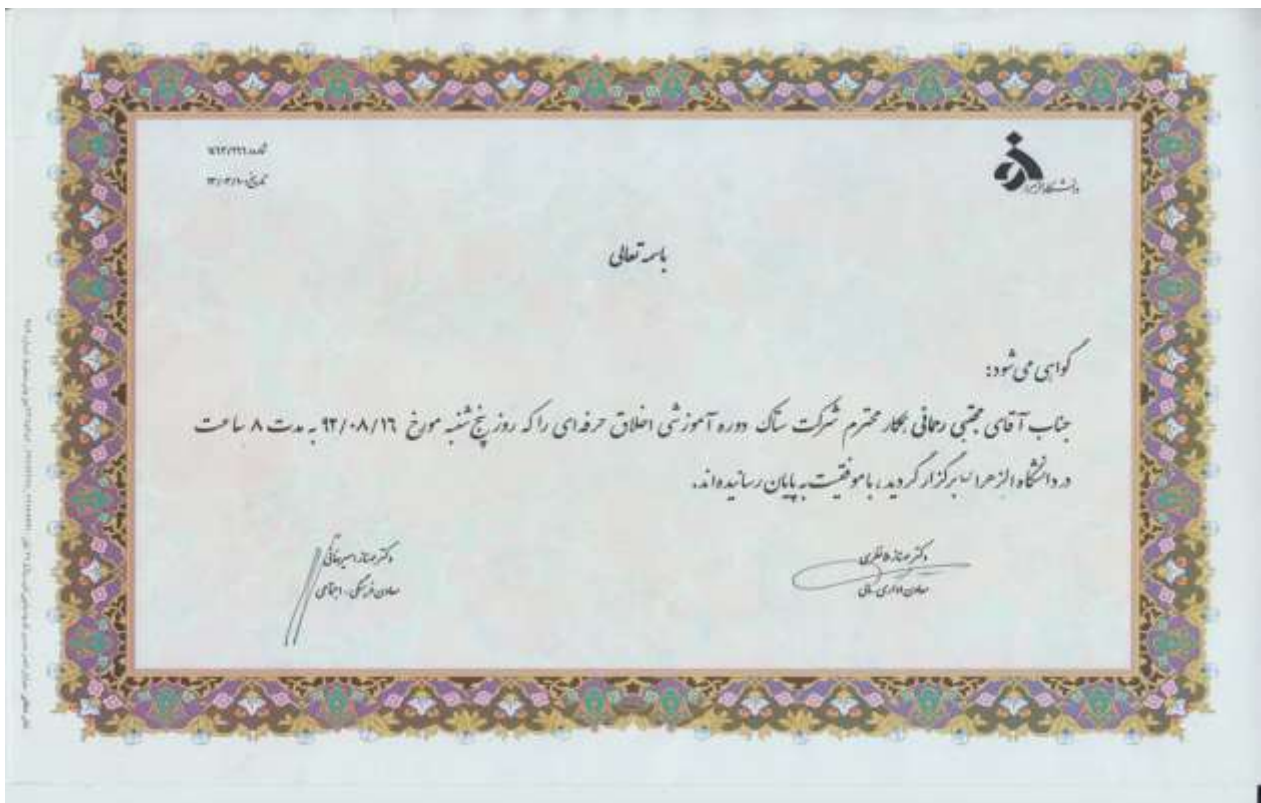 دانشگاه الزهرا
شماره:
تاریخ:
باسمه تعالی
گواهی می شود:
جناب آقای مجتبی رحمانی همکار محترم شرکت ستاک دوره آموزشی اخلاق حرفه ای را که روز پنج شنبه مورخ ۹۲/۰۸/۱۶ به مدت ۸ ساعت
در دانشگاه الزهرا برگزار گردید، با موفقیت به پایان رسانیده اند.
دکتر مهناز
معاون اداری - مالی
دکتر مهناز
معاون فرهنگی - اجتماعی